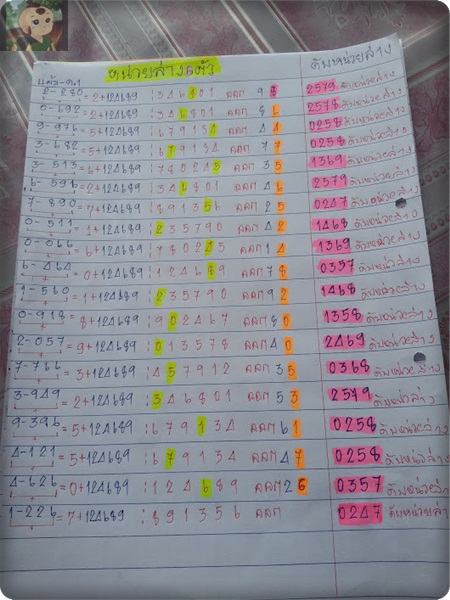 หน่วยล่าง6ตัว ดับหน่วยล่าง
2-280 = 2+124689 : 346801 ออก 98 2579 ดับหน่วยล่าง
0-692 = 2+124689 : 346801 ออก 86 2579 ดับหน่วยล่าง
9-976 = 5+124689 : 679134 ออก 44 0258 ดับหน่วยล่าง
3-682 = 5+124689 : 679134 ออก 77 0258 ดับหน่วยล่าง
3-513 = 6+124689 : 780245 ออก 35 1369 ดับหน่วยล่าง
6-596 = 2+124689 : 346801 ออก 46 2579 ดับหน่วยล่าง
7-890 = 7+124689 : 891356 ออก 25 0247 ดับหน่วยล่าง
0-511 = 1+124689 : 235790 ออก 42 1468 ดับหน่วยล่าง
0-066 = 6+124689 : 780245 ออก 14 1369 ดับหน่วยล่าง
6-464 = 0+124689 : 124689 ออก 78 0357 ดับหน่วยล่าง
1-560 = 1+124689 : 235790 ออก 92 1468 ดับหน่วยล่าง
0-918 = 8+124689 : 902467 ออก 80 1358 ดับหน่วยล่าง
2-057 = 9+124689 : 013578 ออก 40 2469 ดับหน่วยล่าง
7-766 = 3+124689 : 457912 ออก 35 0368 ดับหน่วยล่าง
3-949 = 2+124689 : 346801 ออก 53 2579 ดับหน่วยล่าง
9-396 = 5+124689 : 679134 ออก 61 0258 ดับหน่วยล่าง
4-121 = 5+124689 : 679134 ออก 47 0258 ดับหน่วยล่าง
4-626 = 0+124689 : 124689 ออก 26 0357 ดับหน่วยล่าง
1-226 = 7+124689 : 891356 ออก 0247 ดับหน่วยล่าง